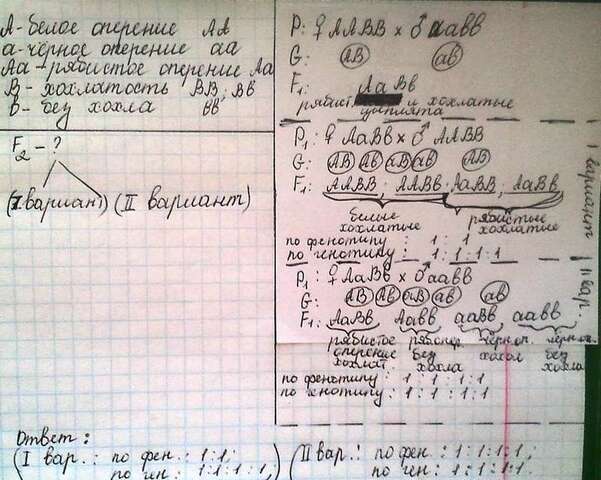 А-белое оперение АА
а-чёрное оперение аа
Аа-рябистое оперение Аа
В- хохлатость ВВ; Вв
в- без хохла вв
F2 - ?
(I вариант) (II вариант)
P: ♀ ААВВ × ♂ аавв
G: АВ ав
F1: АаВв
рябист и хохлатые
цыплята
P1: ♀ АаВв × ♂ ААВВ
АВ Ав аВ ав АВ
F1: ААВВ; ААВв; АаВВ; АаВв
белые рябистые
хохлатые хохлатые
по фенотипу : 1 : 1
по генотипу : 1:1:1:1
I вариант
II вар.
P1: ♀ АаВв × ♂ аавв
G: АВ Ав аВ ав ав
F1: АаВв Аавв ааВв аавв
рябистое рябопер. чёрн.оп. чёрн.оп.
оперение без хохол без
хохлат. хохла хохла
по фенотипу : 1 : 1 : 1 : 1
по генотипу : 1 : 1 : 1 : 1
Ответ :
(I вар.: по фен.: 1:1;
по ген: 1:1:1:1;)
(II вар.: по фен: 1:1:1:1;
по ген: 1:1:1:1.